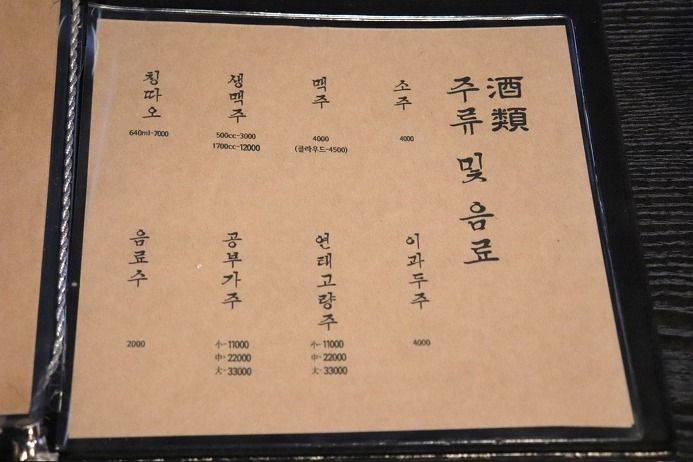 酒類
주류 및 음료
소주
4000
맥주
4000
(클라우드-4500)
생맥주
500cc-3000
1700cc-12000
칭따오
640ml-7000
이과두주
4000
연태고량주
小-11000
中-22000
大-33000
공부가주
小-11000
中-22000
大-33000
음료수
2000